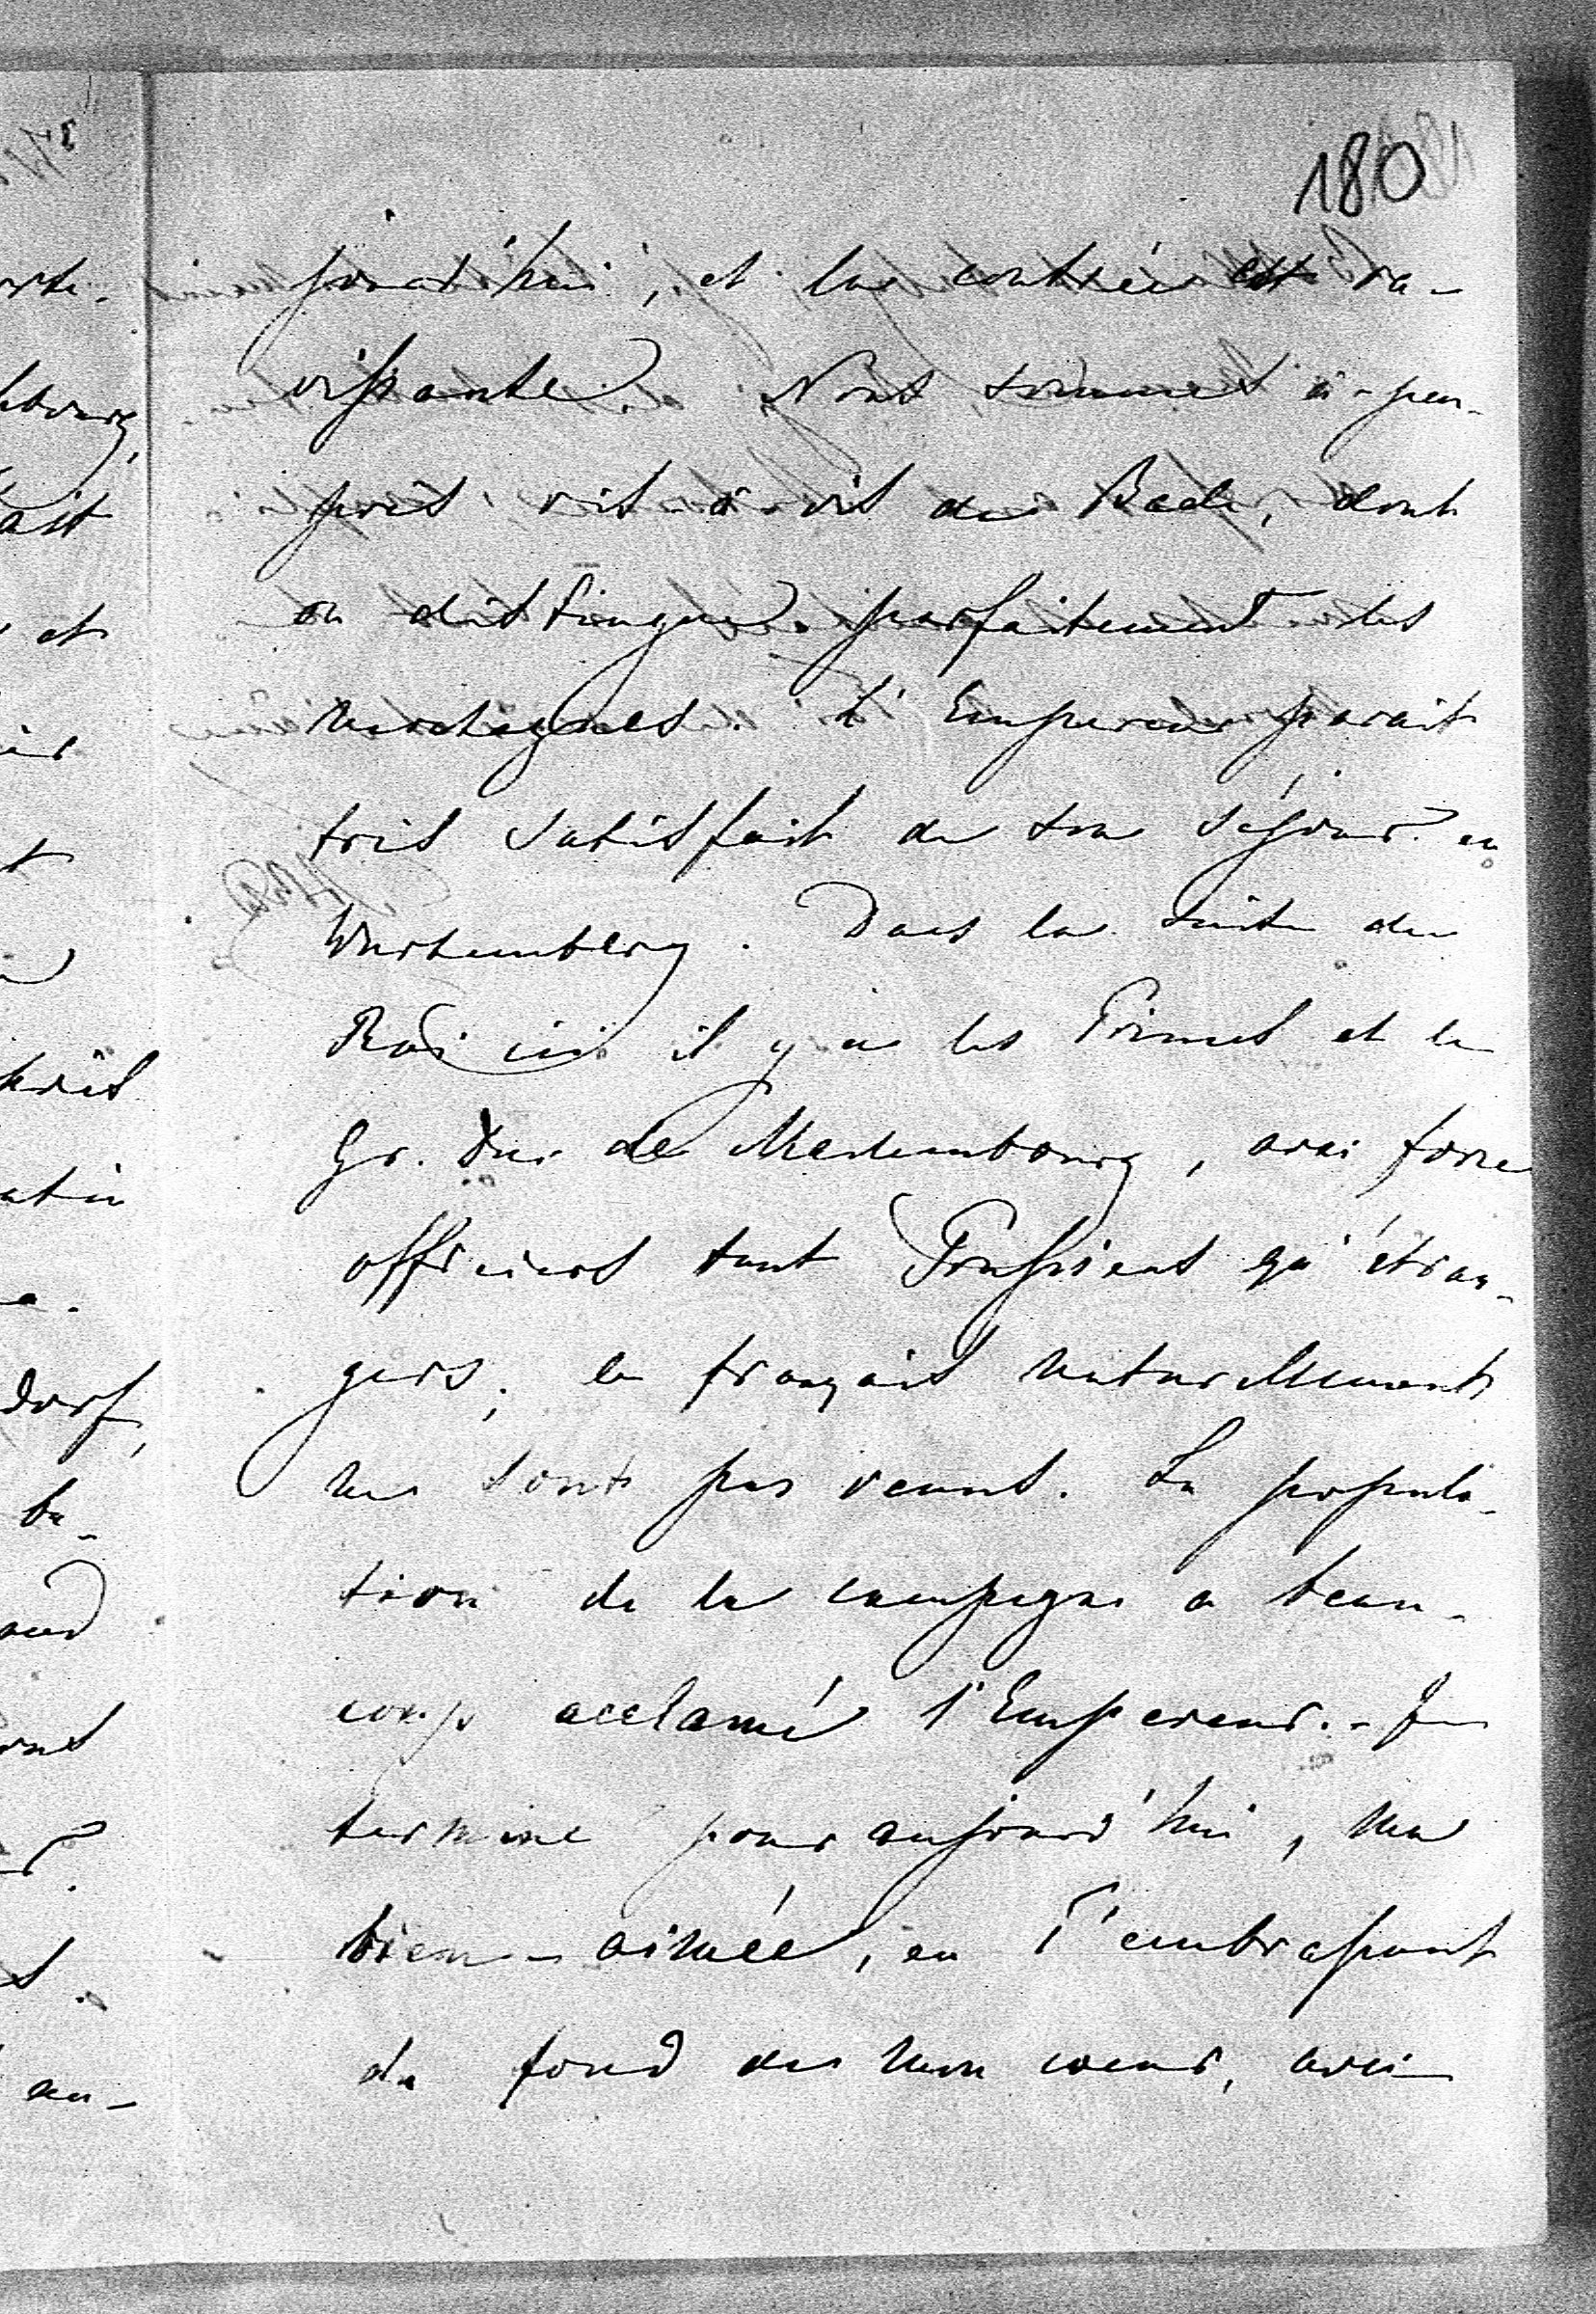 180
jourd'hui, et la contrée est ra-
vissante. Nous sommes à-peu-
près vis-à-vis de Bade, dont
on distingue parfaitement les
montagnes. L'Empereur parait
très satisfait de son séjour en
Wurtemberg. Dans la suite du
Roi ici il y a les Princes et le
Gr. Duc de Mecklembourg, avec force
officiers tant Prussiens qu'étran-
gers; les français naturellement
ne sont pas venus. La popula-
tion de la campagne a beau-
coup acclamé l'Empereur. - Je
termine pour aujourd'hui, ma
bien-aimée, en T'embrassant
du fond de mon coeur, avec